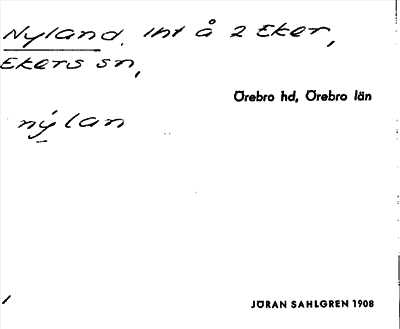 Nyland. Int å 2 Eker,
Ekers sn,
Örebro hd, Örebro län
nýlan
JÖRAN SAHLGREN 1908